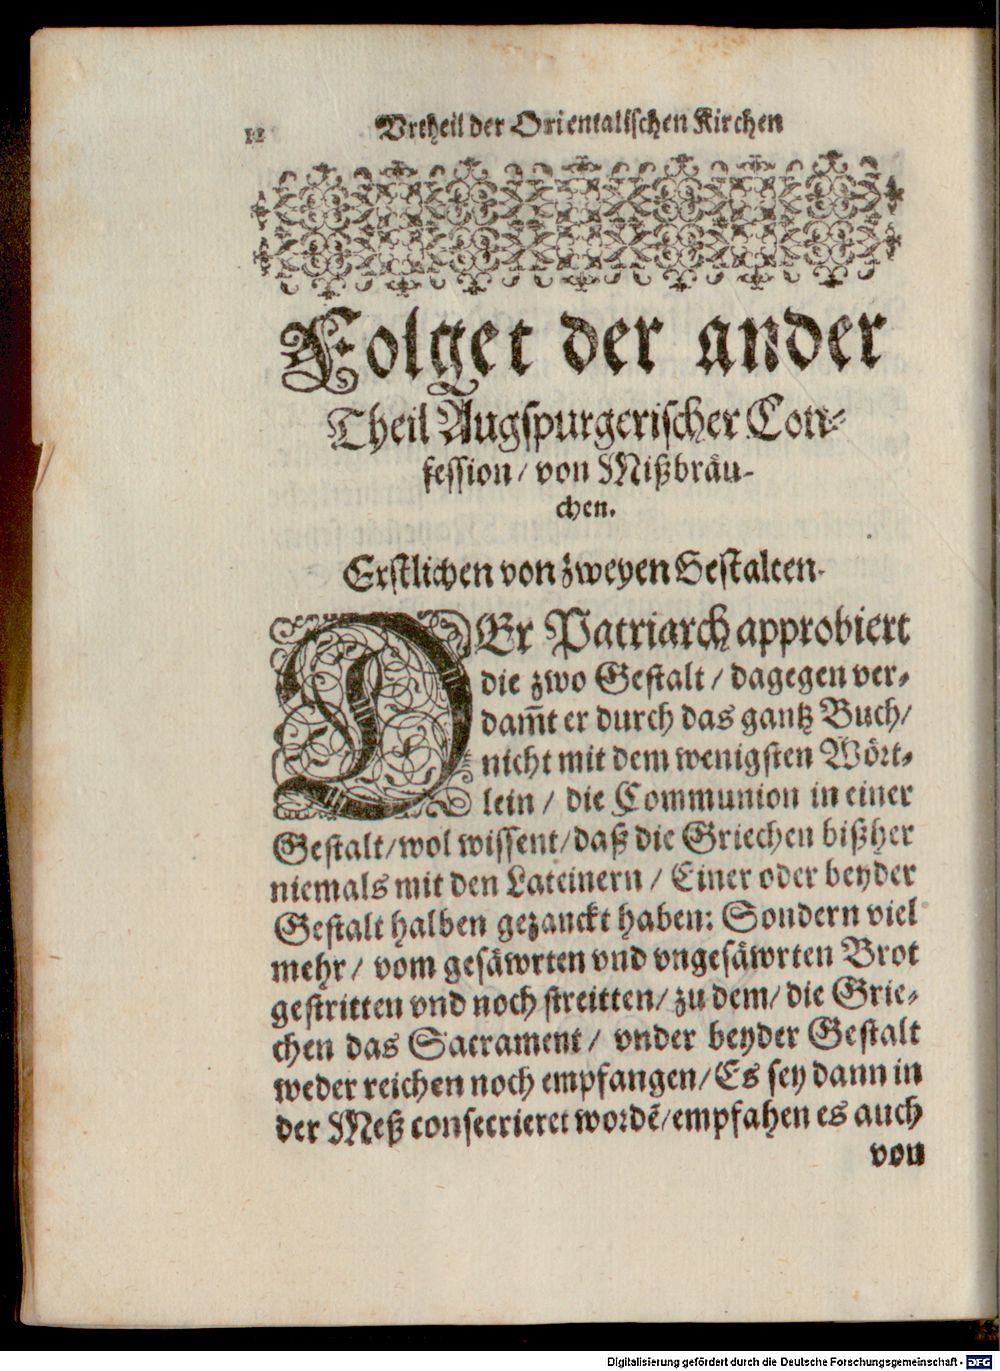 12 Vrtheil der Orientalischen Kirchen
Folget der ander
Theil Augspurgerischer Con⸗
fession / von Mißbräu⸗
chen.
Erstlichen von zweyen Gestalten.
DEr Patriarch approbiert
die zwo Gestalt / dagegen ver⸗
dam̃t er durch das gantz Buch /
nicht mit dem wenigsten Wört⸗
lein / die Communion in einer
Gestalt / wol wissent / daß die Griechen bißher
niemals mit den Lateinern / Einer oder beyder
Gestalt halben gezanckt haben: Sondern viel
mehr / vom gesäwrten vnd vngesäwrten Brot
gestritten vnd noch streitten / zu dem / die Grie⸗
chen das Sacrament / vnder beyder Gestalt
weder reichen noch empfangen / Es sey dann in
der Meß consecrieret wordẽ / empfahen es auch
von
Digitalisierung gefördert durch die Deutsche Forschungsgemeinschaft - DFG